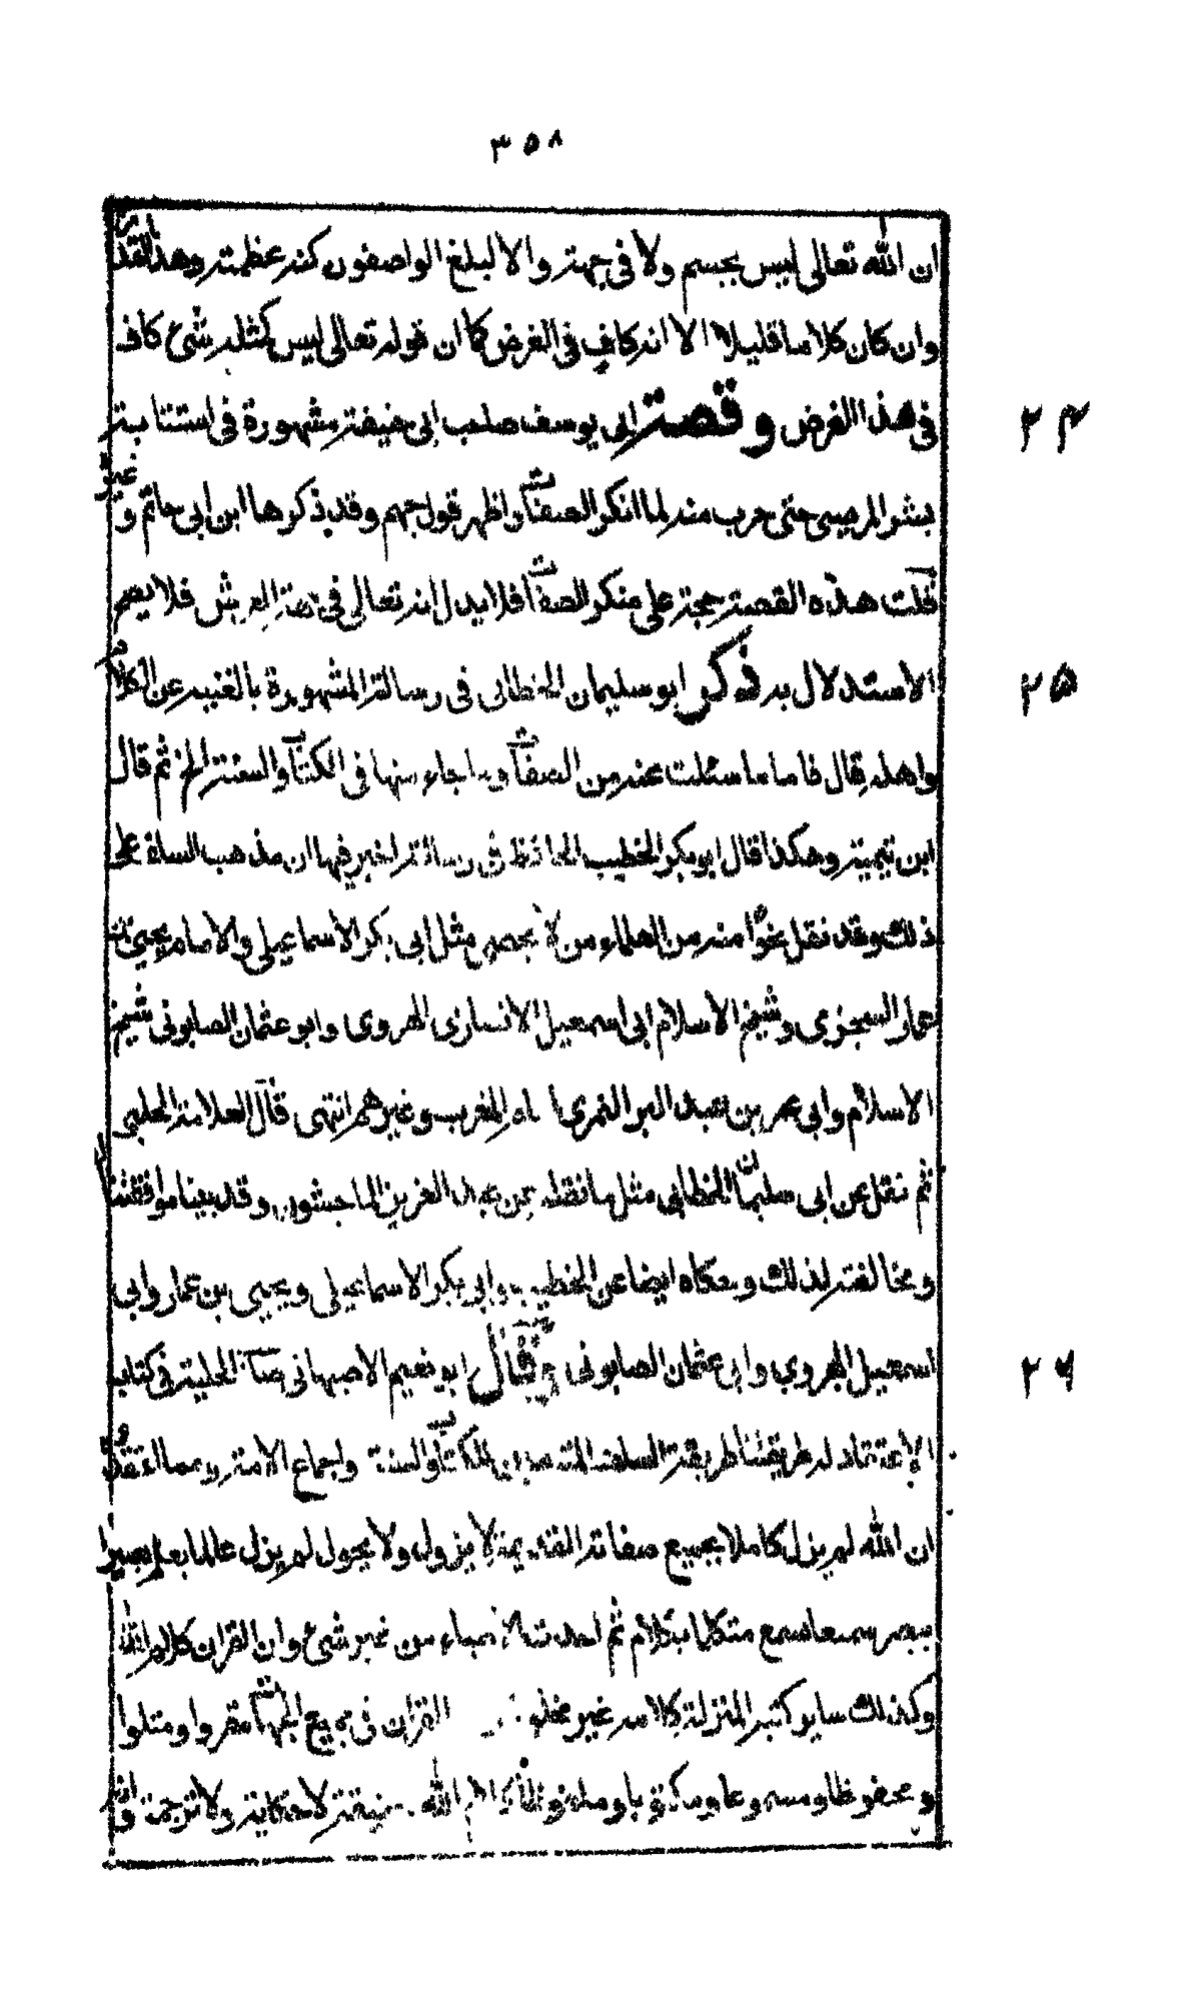 ٣٥٨
ان الله تعالى ليس بجسم ولا فى جهته والا لبلغ الواصفون كنه عظمته وهذا القدر
وان كان كلاما قليلا الا انه كاف فى الغرض كما ان قوله تعالى ليس كمثله شئ كاف
فى هذا الغرض وقصة ابى يوسف صاحب ابى حنيفة مشهورة فى استتابته
٢٤
بشر المريسى حتى هرب منه لما انكر الصفات واظهر قول جهم وقد ذكرها ابن ابى حاتم وغيره
قلت هذه القصة حجة على منكر الصفات فلا يدل انه تعالى فى جهة العرش فلا يصح
الاستدلال به ذكر ابو سليمان الخطابى فى رسالته المشهورة بالغنيه عن الكلام
٢٥
واهله قال فاما ما سئلت عنه من الصفات وما جاء منها فى الكتاب والسنة الخ ثم قال
ابن تيمية وهكذا قال ابو بكر الخطيب الحافظ فى رسالة له اخبر فيها ان مذهب السلف على
ذلك وقد نقل نحوا منه من العلماء من لا يحصى مثل ابى بكر الاسماعيلى والامام يحيى بن
عمار السجزى وشيخ الاسلام ابى اسمعيل الانصارى الهروى وابو عثمان الصابونى شيخ
الاسلام وابى عمر بن عبد البر النمرى امام المغرب وغيرهم انتهى قال العلامة الحلبى
ثم نقل عن ابى سليمان الخطابى مثل ما نقله عن عبد العزيز الماجشون وقد بينا موافقتنا له
ومخالفته لذلك وحكاه ايضا عن الخطيب وابى بكر الاسماعيلى ويحيى بن عمار وابى
اسمعيل الهروى وابى عثمان الصابونى وقال ابو نعيم الاصبهانى صاحب الحلية فى كتابه
٢٦
الاعتقاد له طريقتنا طريقة السلف المتبعين للكتاب والسنة واجماع الامة ومما اعتقدوه
ان الله لم يزل كاملا بجميع صفاته القديمة لا يزول ولا يحول لم يزل عالما بعلم بصيرا
ببصر سميعا بسمع متكلما بكلام ثم احدث الاشياء من غير شئ وان القران كلام الله
وكذلك ساير كتبه المنزلة كلامه غير مخلوق القران فى جميع الجهات مقروا ومتلوا
ومحفوظا ومسموعا ومكتوبا وملفوظا كلام الله حقيقة لا حكاية ولا ترجمة وانه